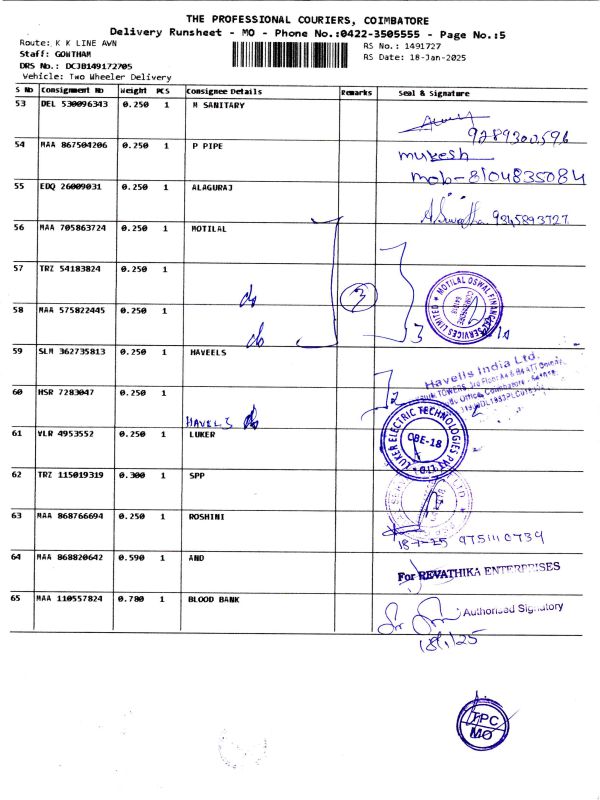 THE PROFESSIONAL COURIERS, COIMBATORE
Delivery Runsheet - MO - Phone No.:0422-3505555 - Page No.:5
Route: K K LINE AVN
Staff: GOWTHAM
DRS No.: DCJB149172705
Vehicle: Two Wheeler Delivery
RS No.: 1491727
RS Date: 18-Jan-2025
S No Consignment No Weight PCS Consignee Details Remarks Seal & Signature
53 DEL 530096343 0.250 1 M SANITARY
9289300596
54 MAA 867504206 0.250 1 P PIPE
mukesh
mob-8104835084
55 EDQ 26009031 0.250 1 ALAGURAJ
9845893727
56 MAA 705863724 0.250 1 MOTILAL
57 TRZ 54183824 0.250 1
do
3
MOTILAL OSWAL FINANCIAL SERVICES LIMITED
58 MAA 575822445 0.250 1
do
3
59 SLM 362735813 0.250 1 HAVEELS
Havells India Ltd.
60 HSR 7283047 0.250 1
2
HAVELS do
61 VLR 4953552 0.250 1 LUKER
LUKER ELECTRIC TECHNOLOGIES PVT LTD
CBE-18
62 TRZ 115019319 0.300 1 SPP
63 MAA 868766694 0.250 1 ROSHINI
18-1-25 9751110739
64 MAA 868820642 0.590 1 AND
For REVATHIKA ENTERPRISES
65 MAA 110557824 0.780 1 BLOOD BANK
Authorised Signatory
18/1/25
TPC
MO